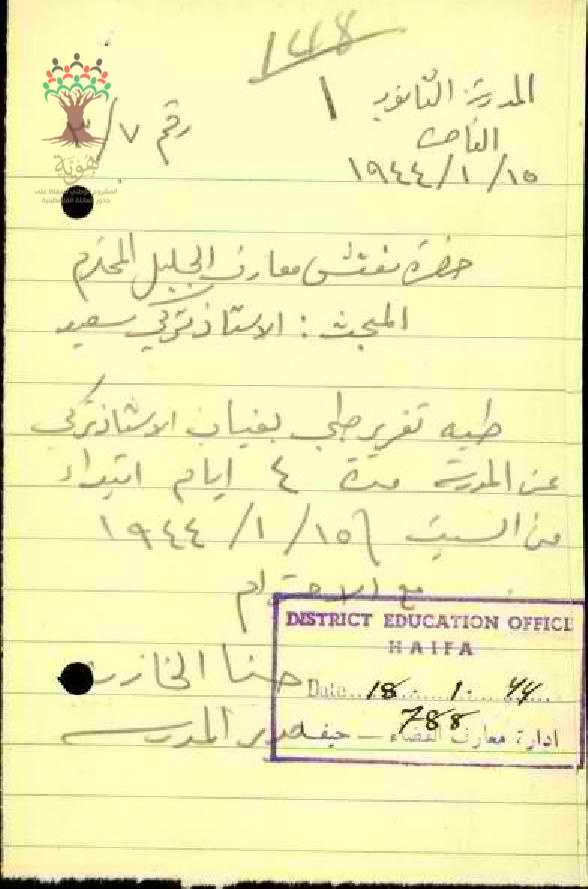 ١٤٨
المدرسة الثانوية
الناصرة
١٩٤٤/١/١٥
رقم ٣/٧
هوية
المشروع الوطني للحفاظ على
جذور العائلة الفلسطينية
حضرة مفتش معارف الجليل المحترم
المبحث : الاستاذ تركي سعيد
طيه تقرير طبي بغياب الاستاذ تركي
عن المدرسة مدة ٤ ايام ابتداء
من السبت ١٩٤٤/١/١٥
مع الاحترام
حنا الخازن
مدير المدرسة
DISTRICT EDUCATION OFFICE
HAIFA
Date 18. 1. 44
788
ادارة معارف القضاء – حيفا